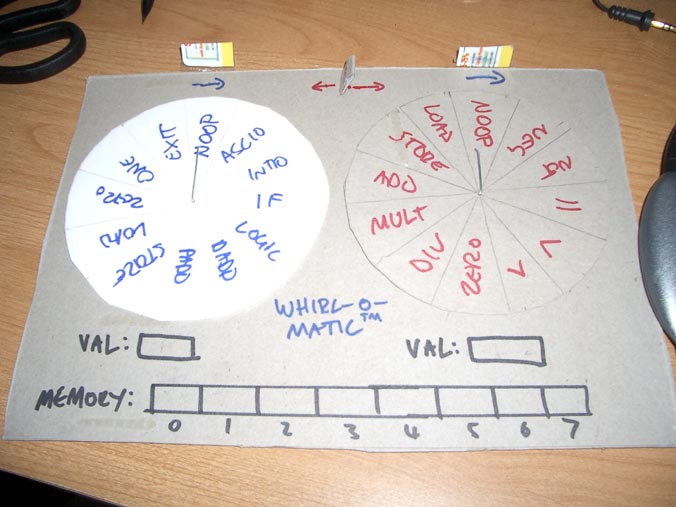 NOOP
ASCIO
INTIO
IF
LOGIC
DADD
PADD
STORE
LOAD
ZERO
ONE
EXIT
NOOP
NEG
=
>
<
ZERO
DIV
MULT
ADD
STORE
LOAD
WHIRL-O-
MATIC™
VAL:
VAL:
MEMORY:
0 1 2 3 4 5 6 7